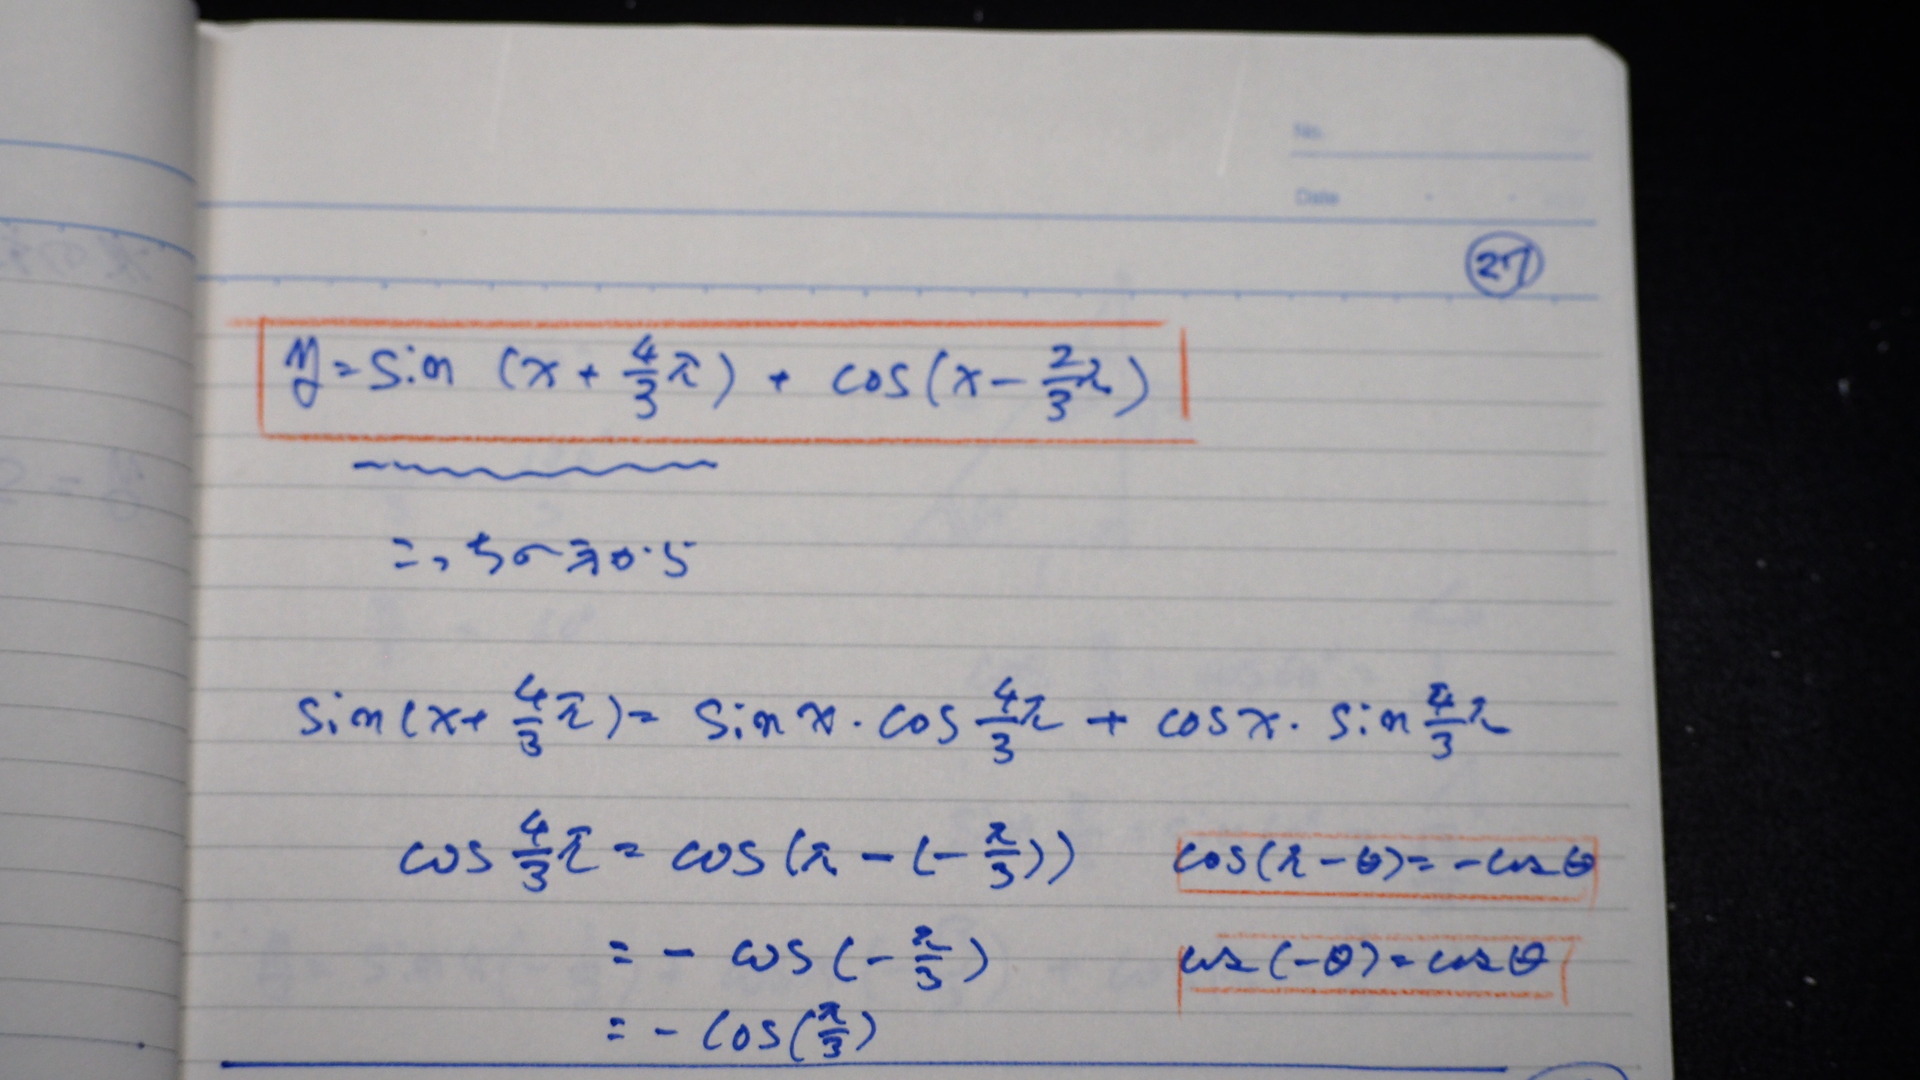 No.
Date
27
y = sin (x + 4/3 π) + cos(x - 2/3 π)
こちらから
sin(x + 4/3 π) = sin x · cos 4/3 π + cos x · sin 4/3 π
cos 4/3 π = cos(π - (- π/3)) cos(π - θ) = - cos θ
= - cos(- π/3) cos(-θ) = cos θ
= - cos(π/3)